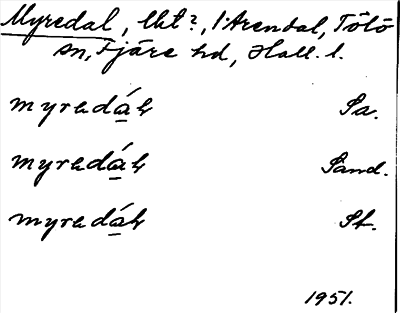 Myredal, lht?, i Arendal, Tölö
sn, Fjäre hd, Hall. l.
myredáł Sa.
myredáł Sand.
myredáł St.
1951.